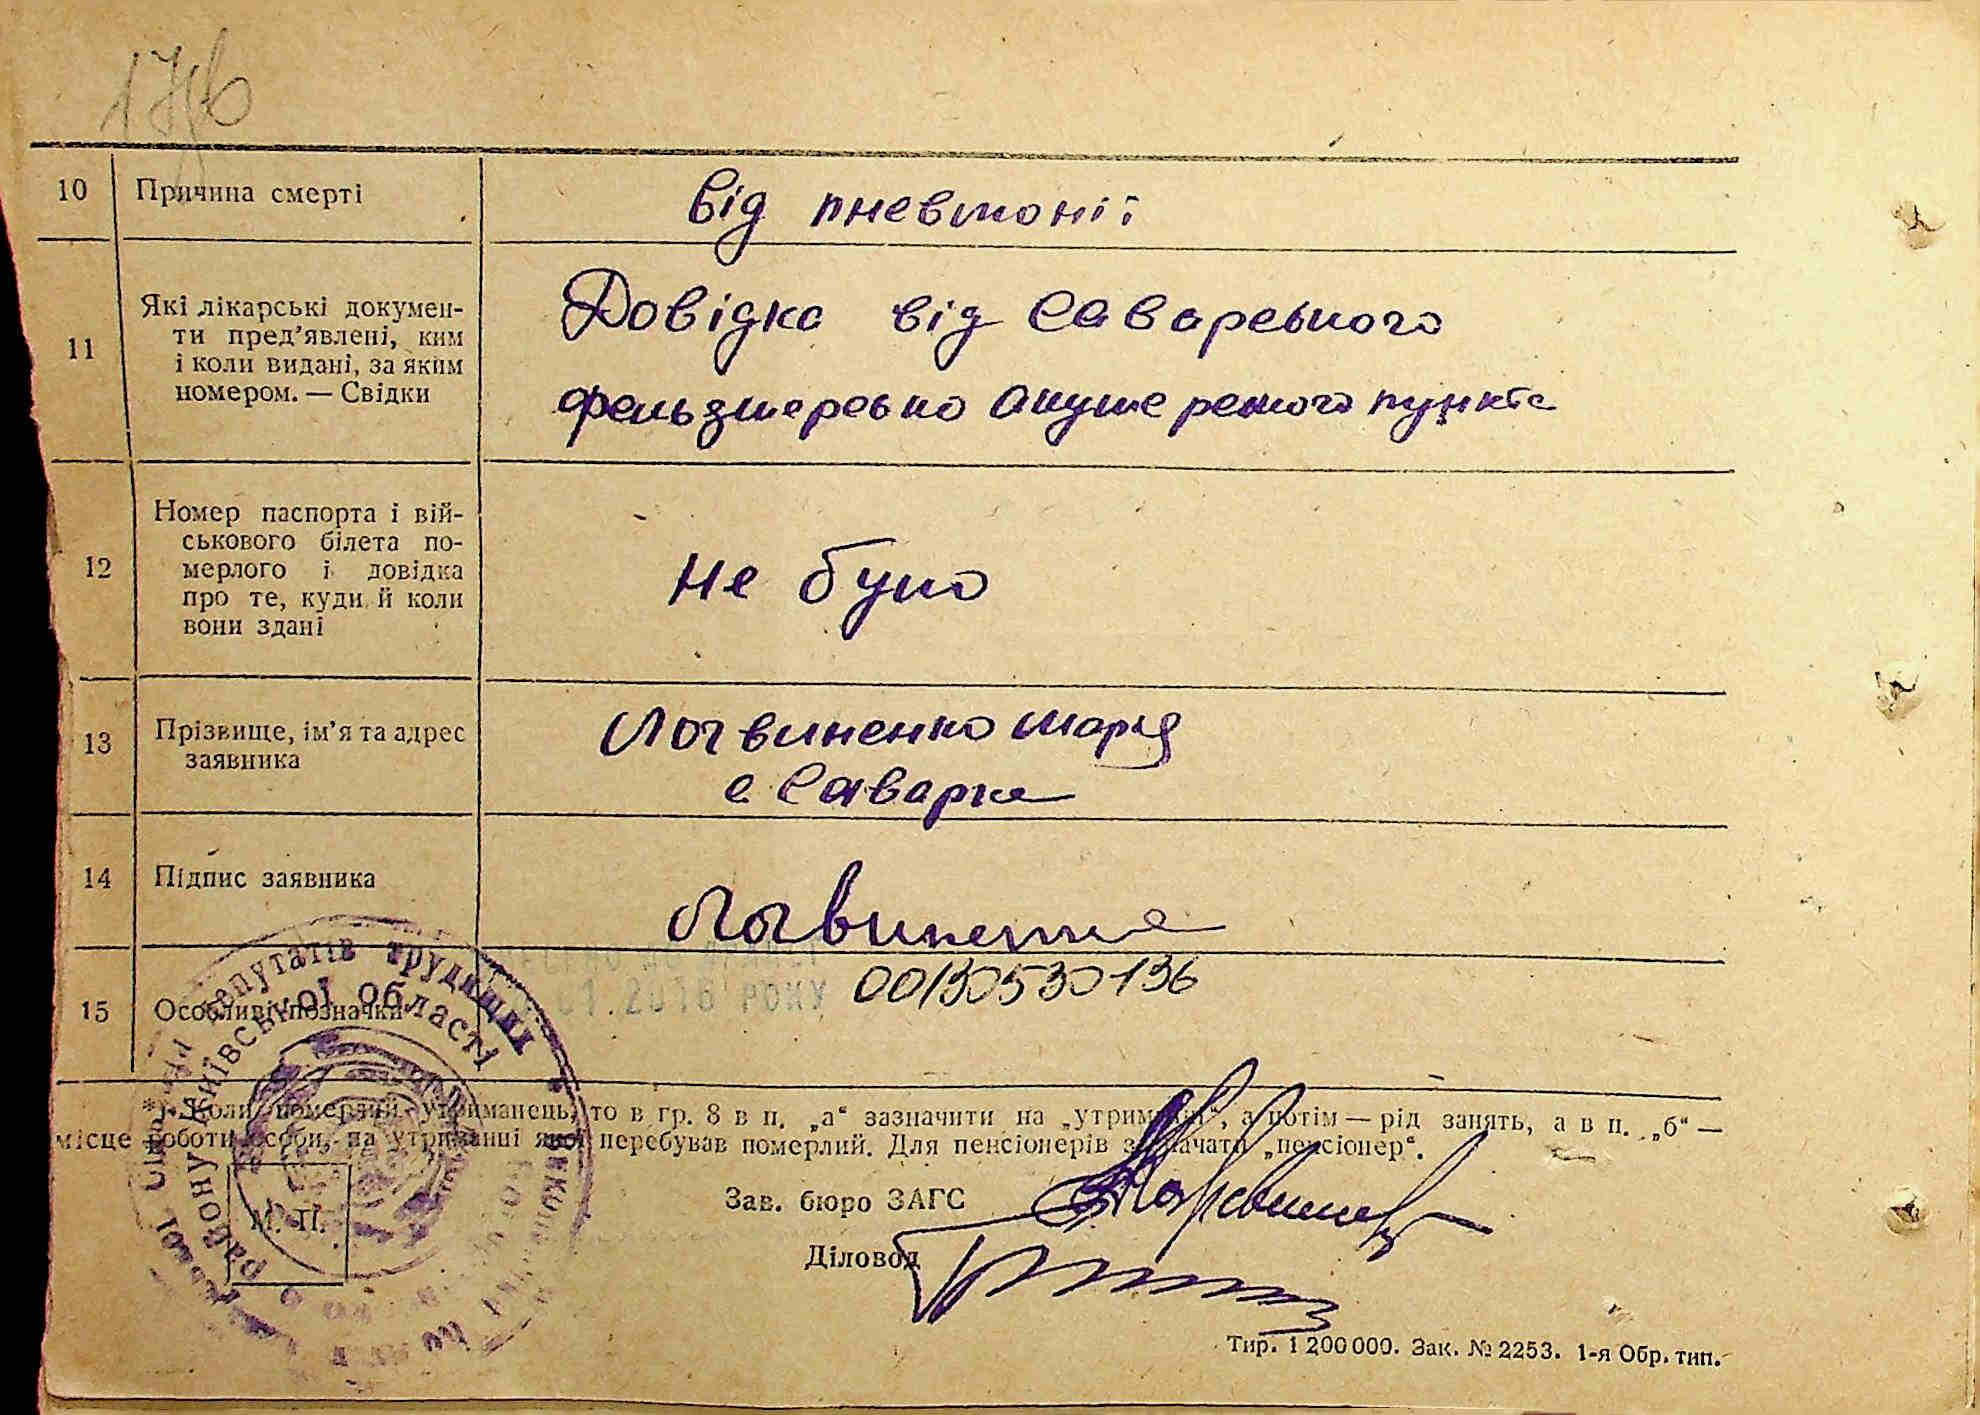 10 Причина смерті від пневмонії
11 Які лікарські докумен-
ти пред’явлені, ким
і коли видані, за яким
номером. — Свідки
Довідка від Саварського
фельдшерсько акушерського пункта
12 Номер паспорта і вій-
ськового білета по-
мерлого і довідка
про те, куди й коли
вони здані
не було
13 Прізвище, ім’я та адрес
заявника
Логвиненко Марія
с Саварка
14 Підпис заявника
Логвиненко
15 Особливі позначки
01.2016 РОКУ
00130530136
*) Коли померлий утриманець, то в гр. 8 в п. „а“ зазначити на „утриманні“, а потім — рід занять, а в п. „б“ —
місце роботи особи, на утриманні якої перебував померлий. Для пенсіонерів зазначати „пенсіонер“.
депутатів трудящих
району Київської області
М. П.
Зав. бюро ЗАГС
Діловод
Тир. 1 200 000. Зак. № 2253. 1-я Обр. тип.